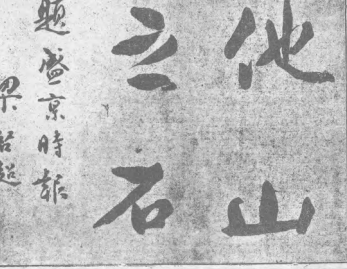 他山
之石
題盛京時報
梁啓超